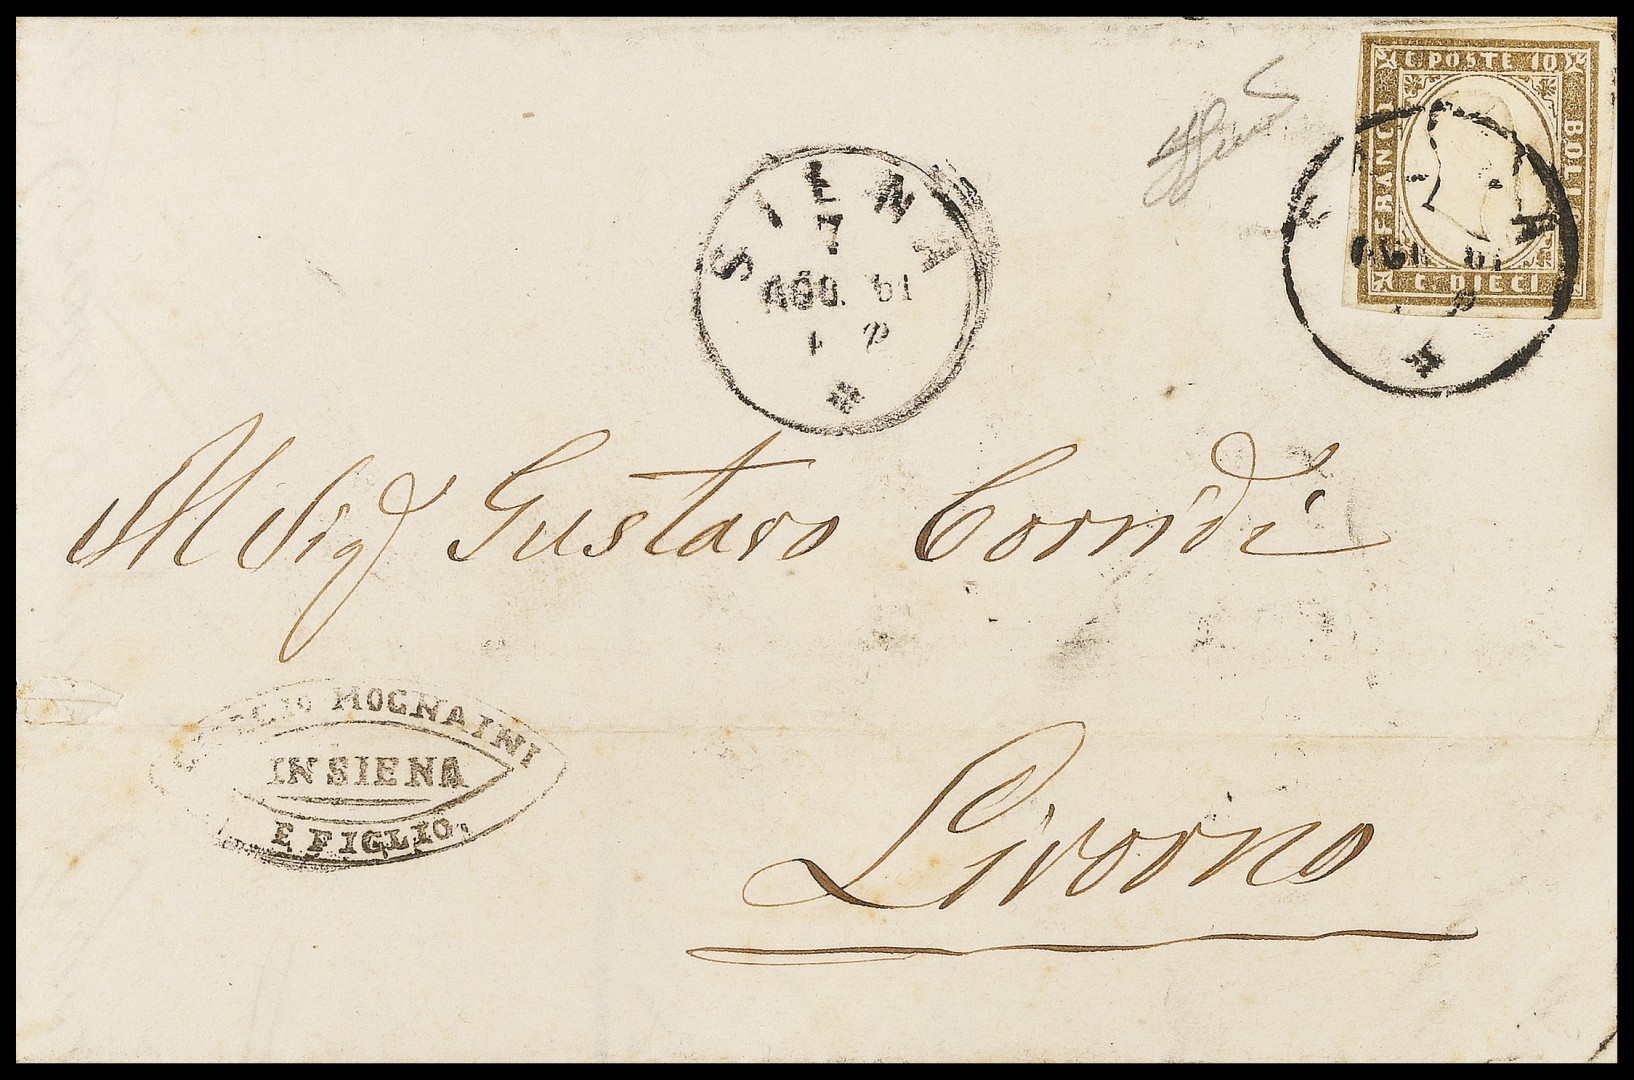 C POSTE 10
FRANCO
BOLLO
C DIECI
AGO. 61
SIENA
7
AGO. 61
1 P
M Sigr Gustavo Corridi
MOGNAINI
IN SIENA
E FIGLIO.
Livorno